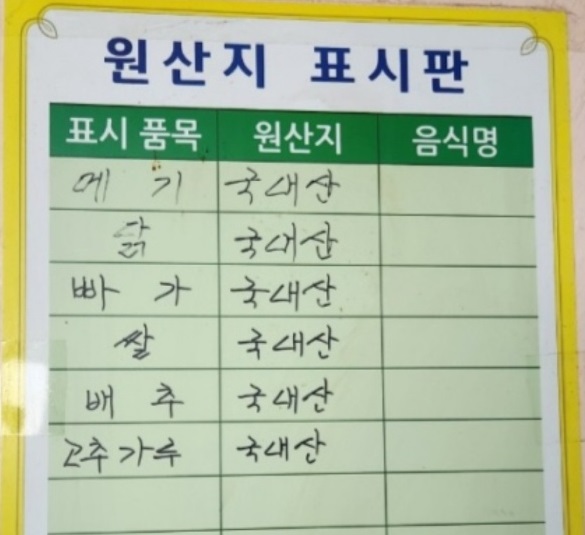 원산지 표시판
표시 품목 원산지 음식명
메 기 국내산
닭 국내산
빠 가 국내산
쌀 국내산
배 추 국내산
고추가루 국내산